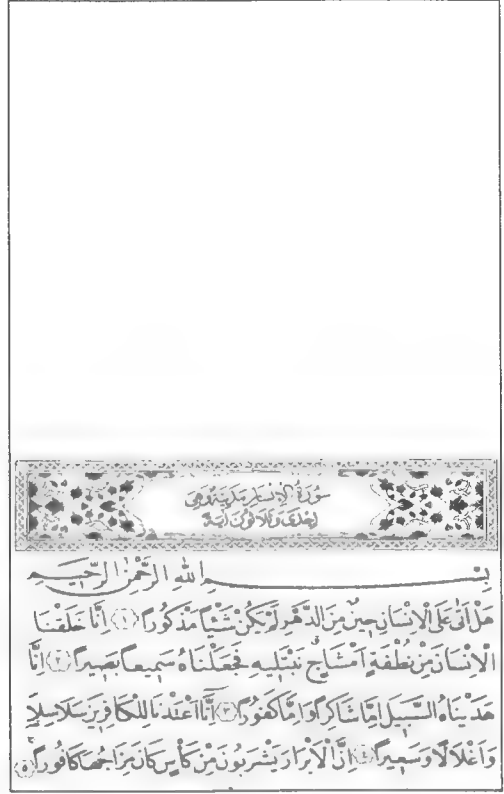 سُورَةُ الْاِنْسَانِ مَدَنِيَّةٌ وَهِيَ
اِحْدٰى وَثَلَاثُونَ اٰيَةً
بِسْــــــــمِ اللهِ الرَّحْمٰنِ الرَّحِيــــمِ
هَلْ اَتٰى عَلَى الْاِنْسَانِ حِينٌ مِنَ الدَّهْرِ لَمْ يَكُنْ شَيْـًٔا مَذْكُورًا ﴿١﴾ اِنَّا خَلَقْنَا
الْاِنْسَانَ مِنْ نُطْفَةٍ اَمْشَاجٍۗ نَبْتَلِيهِ فَجَعَلْنَاهُ سَمِيعًا بَصِيرًا ﴿٢﴾ اِنَّا
هَدَيْنَاهُ السَّبِيلَ اِمَّا شَاكِرًا وَاِمَّا كَفُورًا ﴿٣﴾ اِنَّٓا اَعْتَدْنَا لِلْكَافِرِينَ سَلَاسِلَا۬
وَاَغْلَالًا وَسَعِيرًا ﴿٤﴾ اِنَّ الْاَبْرَارَ يَشْرَبُونَ مِنْ كَأْسٍ كَانَ مِزَاجُهَا كَافُورًاۚ ﴿٥﴾